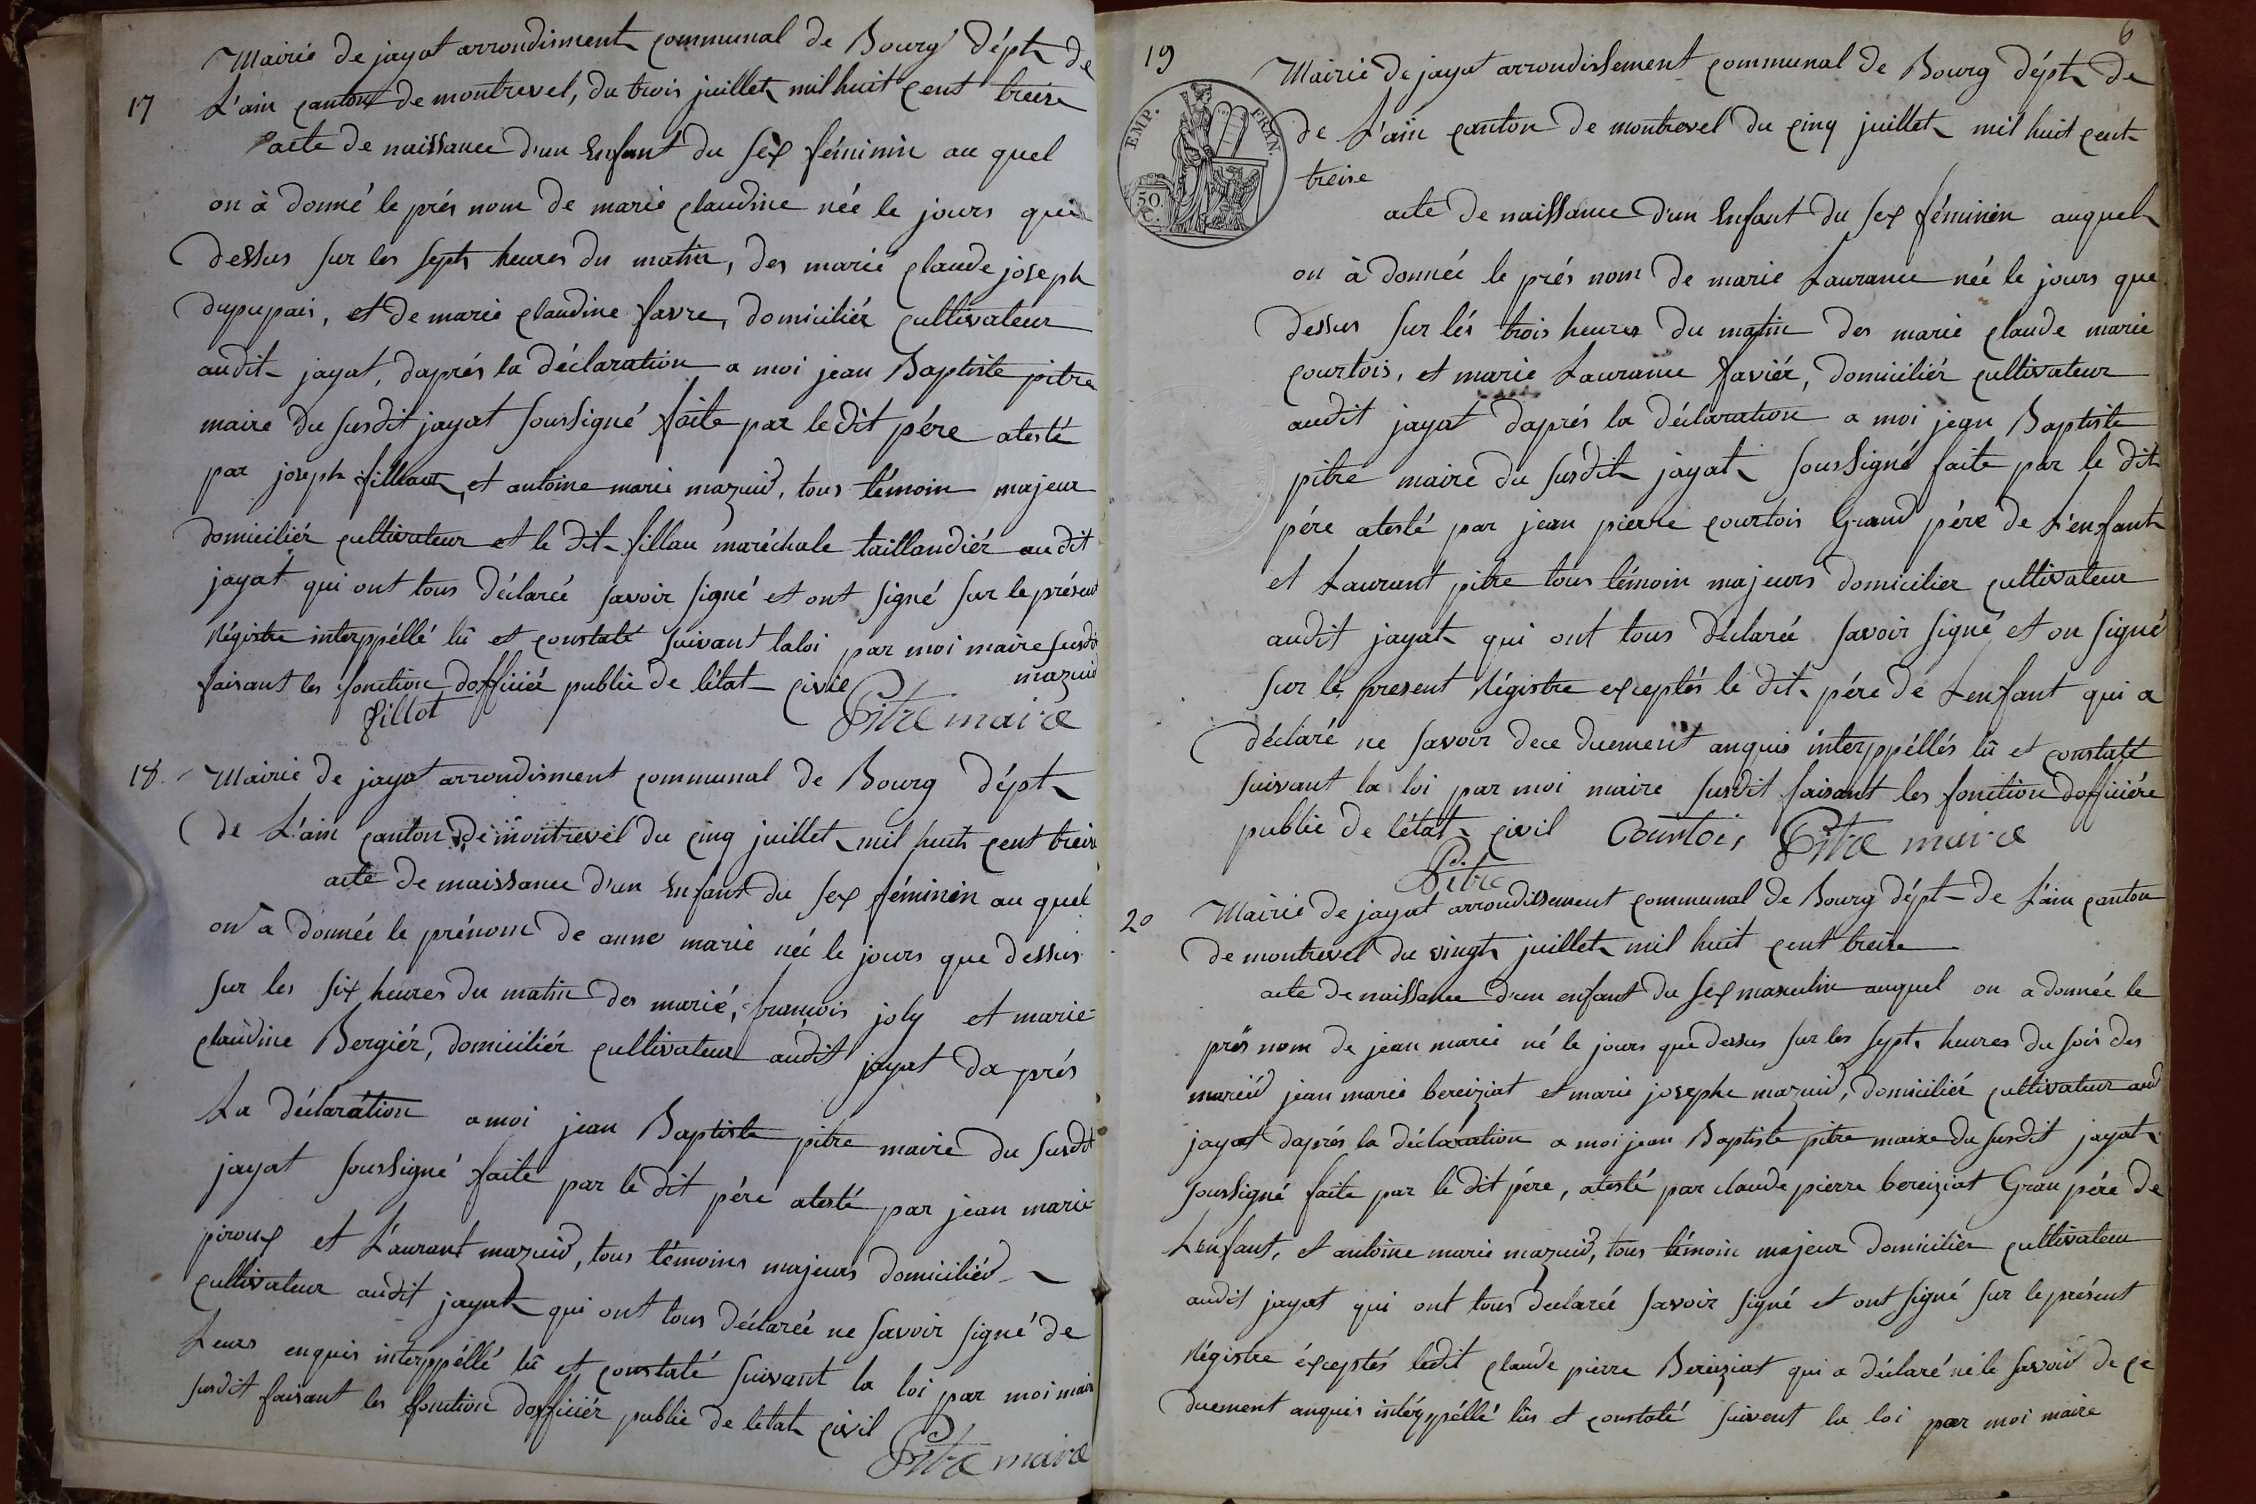 Mairie de jayat arrondisment communal de Bourg dépt de
17
L'ain canton de montrevel, du trois juillet mil huit cent treise
acte de naissance d'un Enfant du sex féminin au quel
on à donné le prés nom de marie claudine née le jours que
dessus sur les sept heures du matin, des marié claude joseph
dupupais, et de marie claudine favre, domiciliér cultivateur
audit jayat, daprés la déclaration a moi jean Baptiste pitre
maire du susdit jayat soussigné faite par le dit pére atesté
par joseph fillaut, et antoine marie mazuid, tous témoin majeur
domiciliér cultivateur et le dit fillau maréchale taillandiér audit
jayat qui ont tous déclarée savoir signé et ont signé sur le présent
Régistre interppéllé lû et constaté suivant la loi par moi maire susdit
faisant les fonction dofficiér public de l'état civil
mazuid
fillot
Pitre maire
18
Mairie de jayat arrondisment communal de Bourg dépt
de L'ain canton de montrevel du cinq juillet mil huit cent treise
acte de naissance d'un Enfant du sex féminin au quel
on a donnée le prénom de anne marie née le jours que dessus
sur les six heures du matin des marié, francois joly et marie
claudine Bergiér, domiciliér cultivateur audit jayat da prés
La déclaration a moi jean Baptiste pitre maire du susdit
jayat soussigné faite par le dit pére atesté par jean marie
piroux et Laurant mazuid, tous témoins majeurs domiciliéd
cultivateur audit jayat qui ont tous déclarée ne savoir signé de
Leurs enquis interppéllé lû et constaté suivant la loi par moi maire
susdit faisant les fonction dofficiér public de letat civil
Pitre maire
6
19
EMP. FRAN.
50 C.
Mairie de jayat arrondissement communal de Bourg dépt de
de L'ain canton de montrevel du cinq juillet mil huit cent
treise
acte de naissance d'un Enfant du sex féminin auquel
on à donnée le prés nom de marie Laurance née le jours que
dessus sur lés trois heures du matin des marié claude marie
courtois, et marie Laurance faviér, domiciliér cultivateur
audit jayat daprés la déclaration a moi jean Baptiste
pitre maire du susdit jayat soussigné faite par le dit
pére atesté par jean pierre courtois Grand pére de L'enfant
et Laurant pitre tous témoin majeurs domicilier cultivateur
audit jayat qui ont tous déclarée savoir signé et on signé
sur le present Régistre exceptés le dit pére de Lenfant qui a
déclaré ne savoir dece duement anquis interppéllés lû et constaté
suivant la loi par moi maire susdit faisant les fonction dofficiére
public de létat civil Courtois Pitre maire
Pitre
20
Mairie de jayat arrondissement communal de Bourg dépt de L'ain canton
de montrevel du vingt juillet mil huit cent treise
acte de naissance d'un enfant du sex masculin auquel on a donnée le
prés nom de jean marie né le jours que dessus sur les sept heures du soir des
mariéd jean marie bereiziat et marie josephe mazuid, domiciliér cultivateur aud
jayat daprés la déclaration a moi jean Baptiste pitre maire du susdit jayat
soussigné faite par le dit pére, atesté par claude pierre bereiziat Gran pére de
Lenfant, et antoine marie mazuid, tous témoin majeur domicilier cultivateur
audit jayat qui ont tous declarée savoir signé et ont signé sur le présent
Régistre éxceptés ledit claude pierre Bereiziat qui a déclaré né le savoir de ce
duement anquis intérppéllé lûs et constaté suivent la loi par moi maire